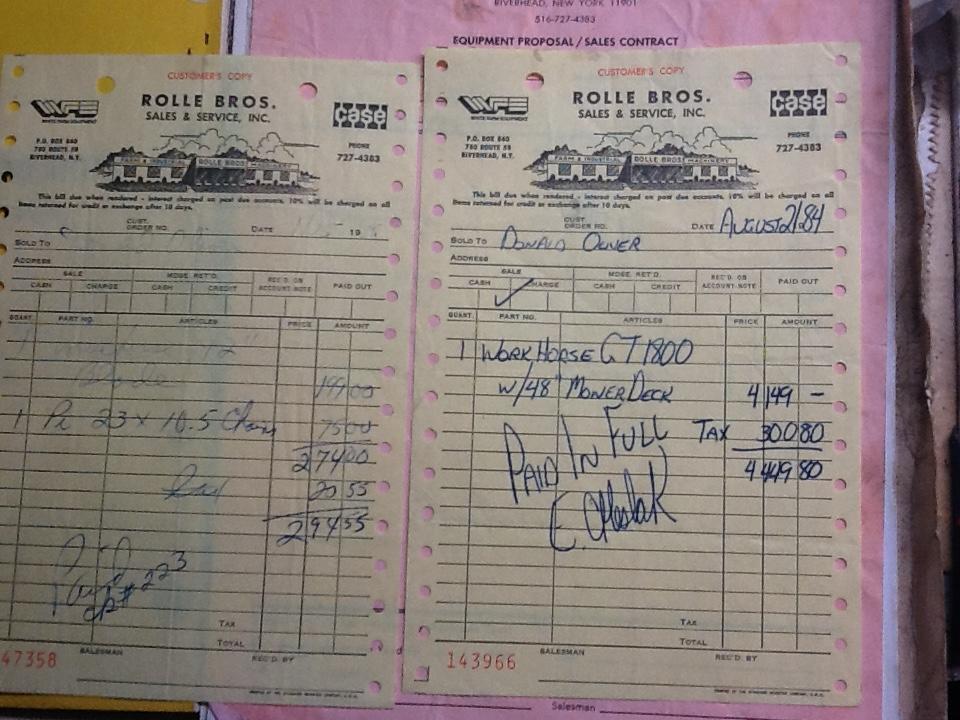 RIVERHEAD, NEW YORK 11901
516-727-4383
EQUIPMENT PROPOSAL/SALES CONTRACT
CUSTOMER'S COPY
WFE
WHITE FARM EQUIPMENT
ROLLE BROS.
SALES & SERVICE, INC.
case
P.O. BOX 860
780 ROUTE 58
RIVERHEAD, N.Y.
PHONE
727-4383
FARM & INDUSTRIAL ROLLE BROS MACHINERY
This bill due when rendered - interest charged on past due accounts. 10% will be charged on all
items returned for credit or exchange after 10 days.
CUST.
ORDER NO. DATE 19
SOLD TO
ADDRESS
SALE MDSE. RET'D. REC'D. ON
CASH CHARGE CASH CREDIT ACCOUNT-NOTE PAID OUT
QUANT. PART NO. ARTICLES PRICE AMOUNT
Blade 199 00
1 Pr 23 x 10.5 Chains 75 00
274 00
20 55
294 55
Paid
CK# 223
TAX
TOTAL
47358 SALESMAN REC'D. BY
CUSTOMER'S COPY
WFE
WHITE FARM EQUIPMENT
ROLLE BROS.
SALES & SERVICE, INC.
case
P.O. BOX 860
780 ROUTE 58
RIVERHEAD, N.Y.
PHONE
727-4383
FARM & INDUSTRIAL ROLLE BROS MACHINERY
This bill due when rendered - interest charged on past due accounts. 10% will be charged on all
items returned for credit or exchange after 10 days.
CUST.
ORDER NO. DATE AUGUST 2/84
SOLD TO DONALD OLIVER
ADDRESS
SALE MDSE. RET'D. REC'D. ON
CASH CHARGE CASH CREDIT ACCOUNT-NOTE PAID OUT
QUANT. PART NO. ARTICLES PRICE AMOUNT
1 WORK HORSE GT 1800
W/48" MOWER DECK 4149 —
TAX 300 80
4449 80
PAID IN FULL
TAX
TOTAL
143966 SALESMAN REC'D. BY
Salesman